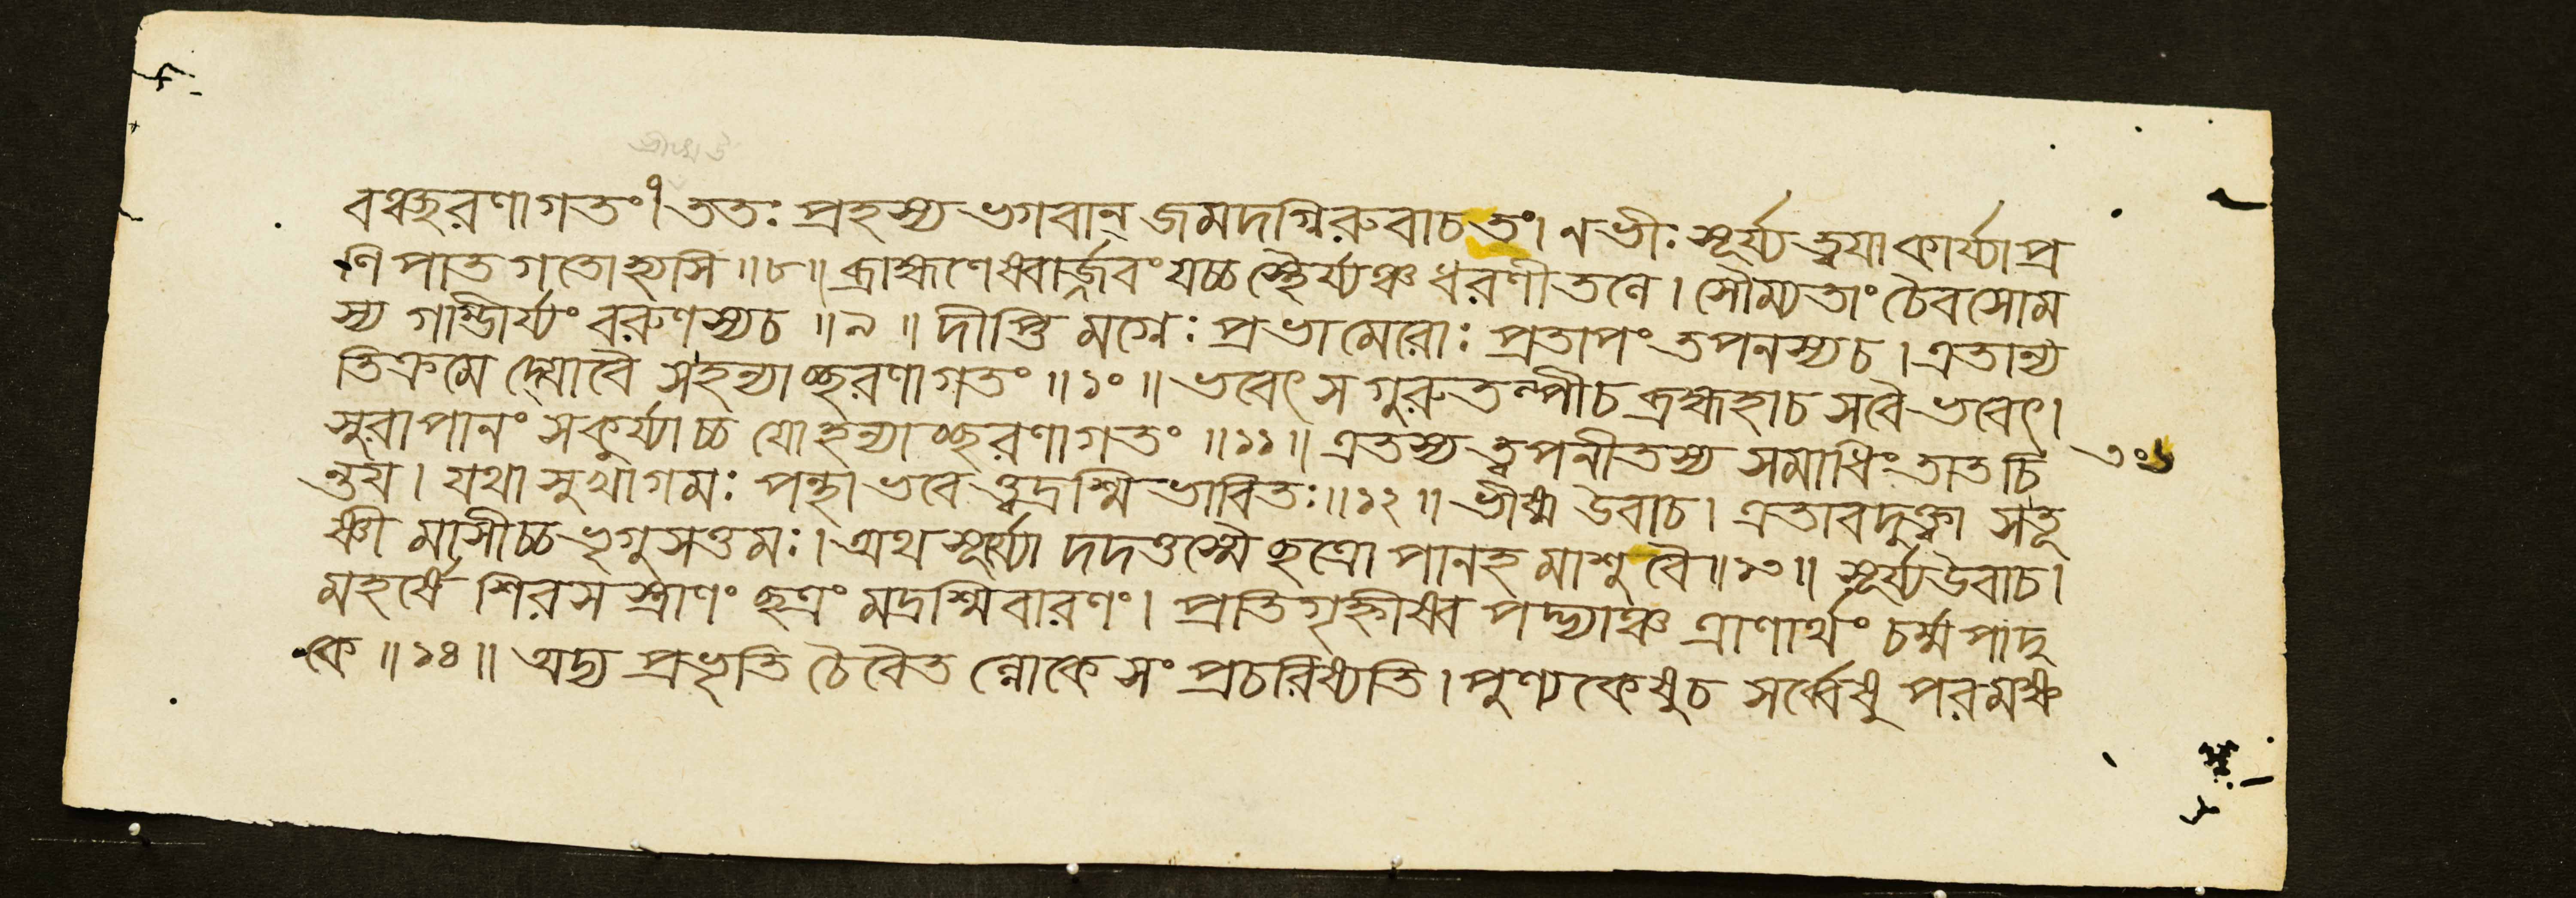 ভীষ্ম উ
বঞ্ছরণাগতং। ততঃ প্রহস্য ভগবান্ জমদগ্নিরুবাচ তং। ন ভীঃ সূর্য্য ত্বয়া কার্য্যা প্র
ণিপাত গতোহ্যসি ॥৮॥ ব্রাহ্মণেষ্বার্জ্জবং যচ্চ স্থৈর্য্যঞ্চ ধরণীতলে। সৌম্যতাং চৈব সোম
স্য গাম্ভীর্য্যং বরুণস্য চ ॥৯॥ দীপ্তিমগ্নেঃ প্রভা মেরোঃ প্রতাপং তপনস্য চ। এতান্য
তিক্রমেদ্যো বৈ স হন্যাচ্ছরণাগতং ॥১০॥ ভবেৎ স গুরুতল্পী চ ব্রহ্মহা চ স বৈ ভবেৎ।
সুরাপানং স কুর্য্যাচ্চ যো হন্যাচ্ছরণাগতং ॥১১॥ এতস্য ত্বপনীতস্য সমাধিং তাত চি
৩০১
ন্তয়। যথা সুখাগমঃ পন্থা ভবেত্ত্বদ্রশ্মি ভাবিতঃ ॥১২॥ ভীষ্ম উবাচ। এতাবদুক্ত্বা স তূ
ষ্ণীমাসীচ্চ ভৃগুসত্তমঃ। অথ সূর্য্যো দদত্তস্মৈ ছত্রোপানহমাশু বৈ ॥১৩॥ সূর্য্য উবাচ।
মহর্ষে শিরসস্ত্রাণং ছত্রং মদ্রশ্মিবারণং। প্রতিগৃহ্নীষ্ব পদ্ভ্যাঞ্চ ত্রাণার্থং চর্ম্মপাদু
কে ॥১৪॥ অদ্য প্রভৃতি চৈবৈত ল্লোকে সংপ্রচরিষ্যতি। পুণ্যকেষু চ সর্ব্বেষু পরমক্ষ